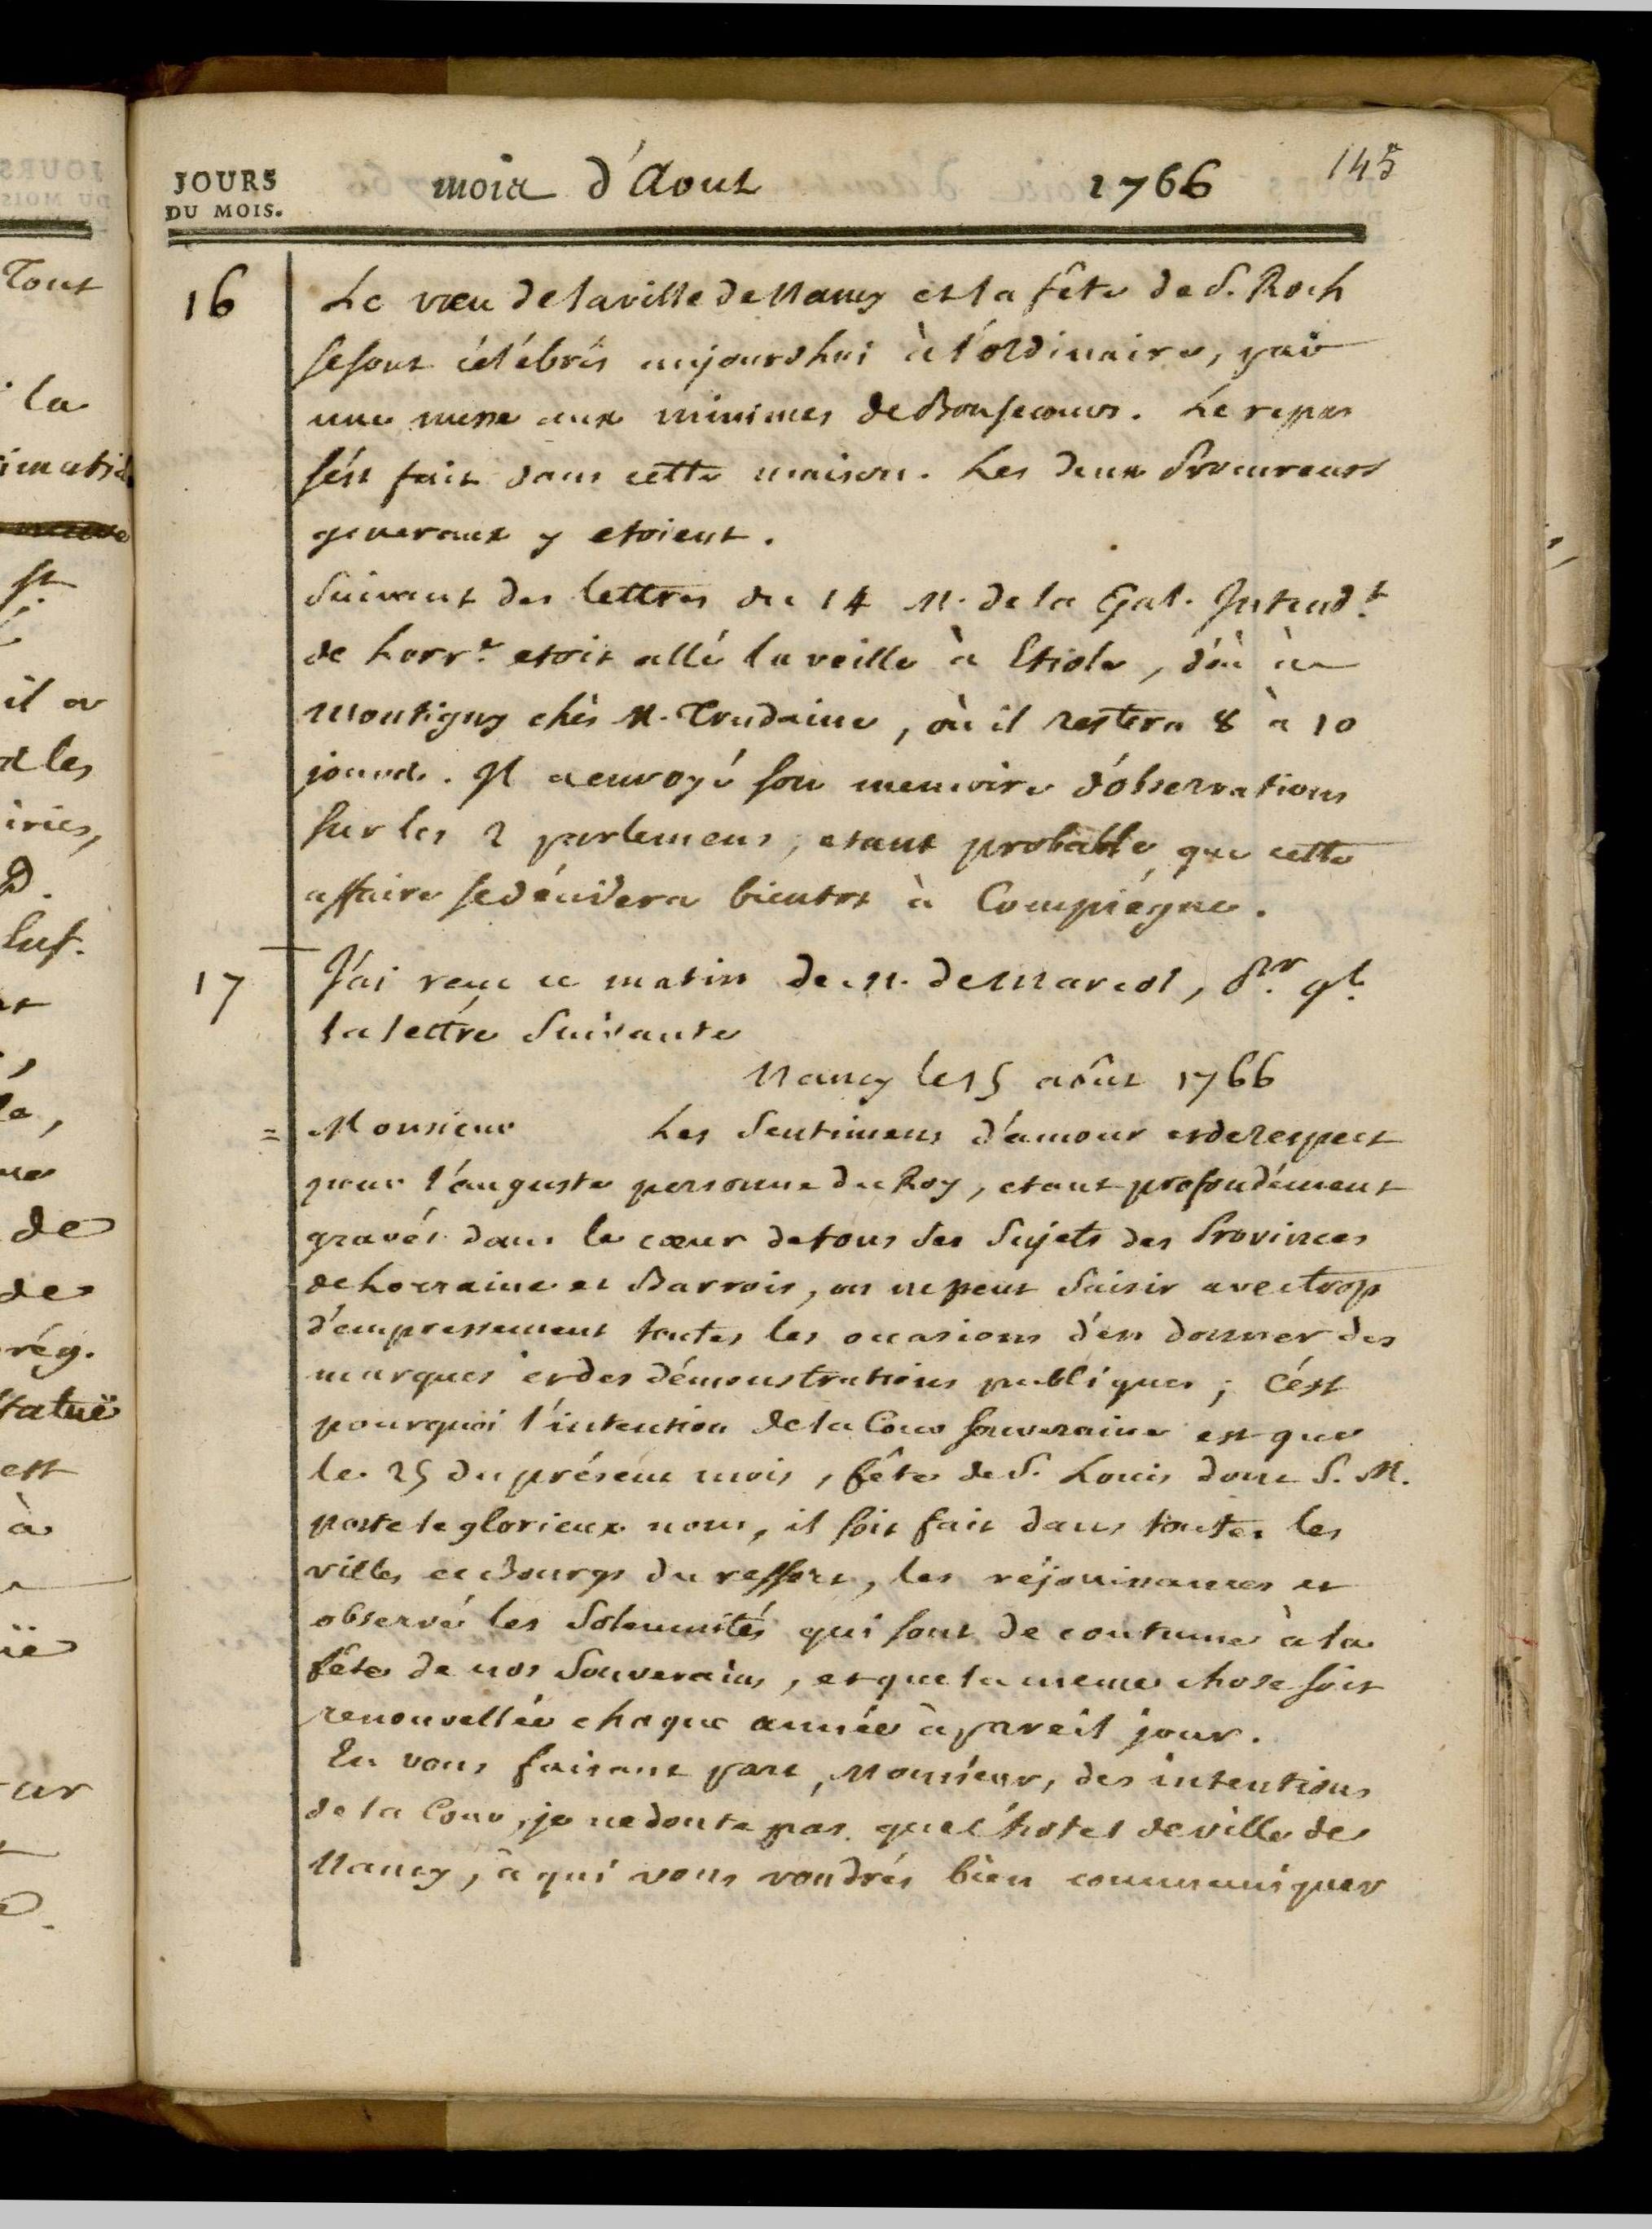 JOURS
DU MOIS.
mois d'Aout 1766 145
16 Le vœu de la ville de Nancy et la fête de S. Roch
se sont célébrés aujourdhui à l'ordinaire, par
une messe aux minimes de Bonsecours. Le repas
s'est fait dans cette maison. Les deux Procureurs
generaux y etoient.
Suivant des lettres du 14 M. de la Gal. Intend.t
de Lorr.e etoit allé la veille à Etiole, d'où à
Montigny chès M. Trudaine, où il restera 8 à 10
jours. Il a envoyé son memoire d'observations
sur les 2 parlemens, etant probable que cette
affaire se décidera bientot à Compiégne.
17 J'ai reçu ce matin de M. de Marcol, P.r g.l
la lettre Suivante
Nancy le 15 août 1766
= Monsieur Les Sentimens d'amour et de respect
pour l'auguste personne du Roy, etant profondément
gravés dans le cœur de tous ses Sujets des Provinces
de Lorraine et Barrois, on ne peut Saisir avec trop
d'empressement toutes les occasions d'en donner des
marques et des démonstrations publiques; c'ést
pourquoi l'intention de la Cour Souveraine est que
le 25 du présent mois, fête de S. Louis dont S. M.
porte le glorieux nom, il soit fait dans toutes les
villes et Bourgs du ressort, les réjouissances et
observé les Solemnités qui sont de coutume à la
fête de nos Souverains, et que la meme chose soit
renouvellée chaque année à pareil jour.
En vous faisant part, Monsieur, des intentions
de la Cour, je ne doute pas que l'hotel de ville de
Nancy, à qui vous voudrés bien communiquer